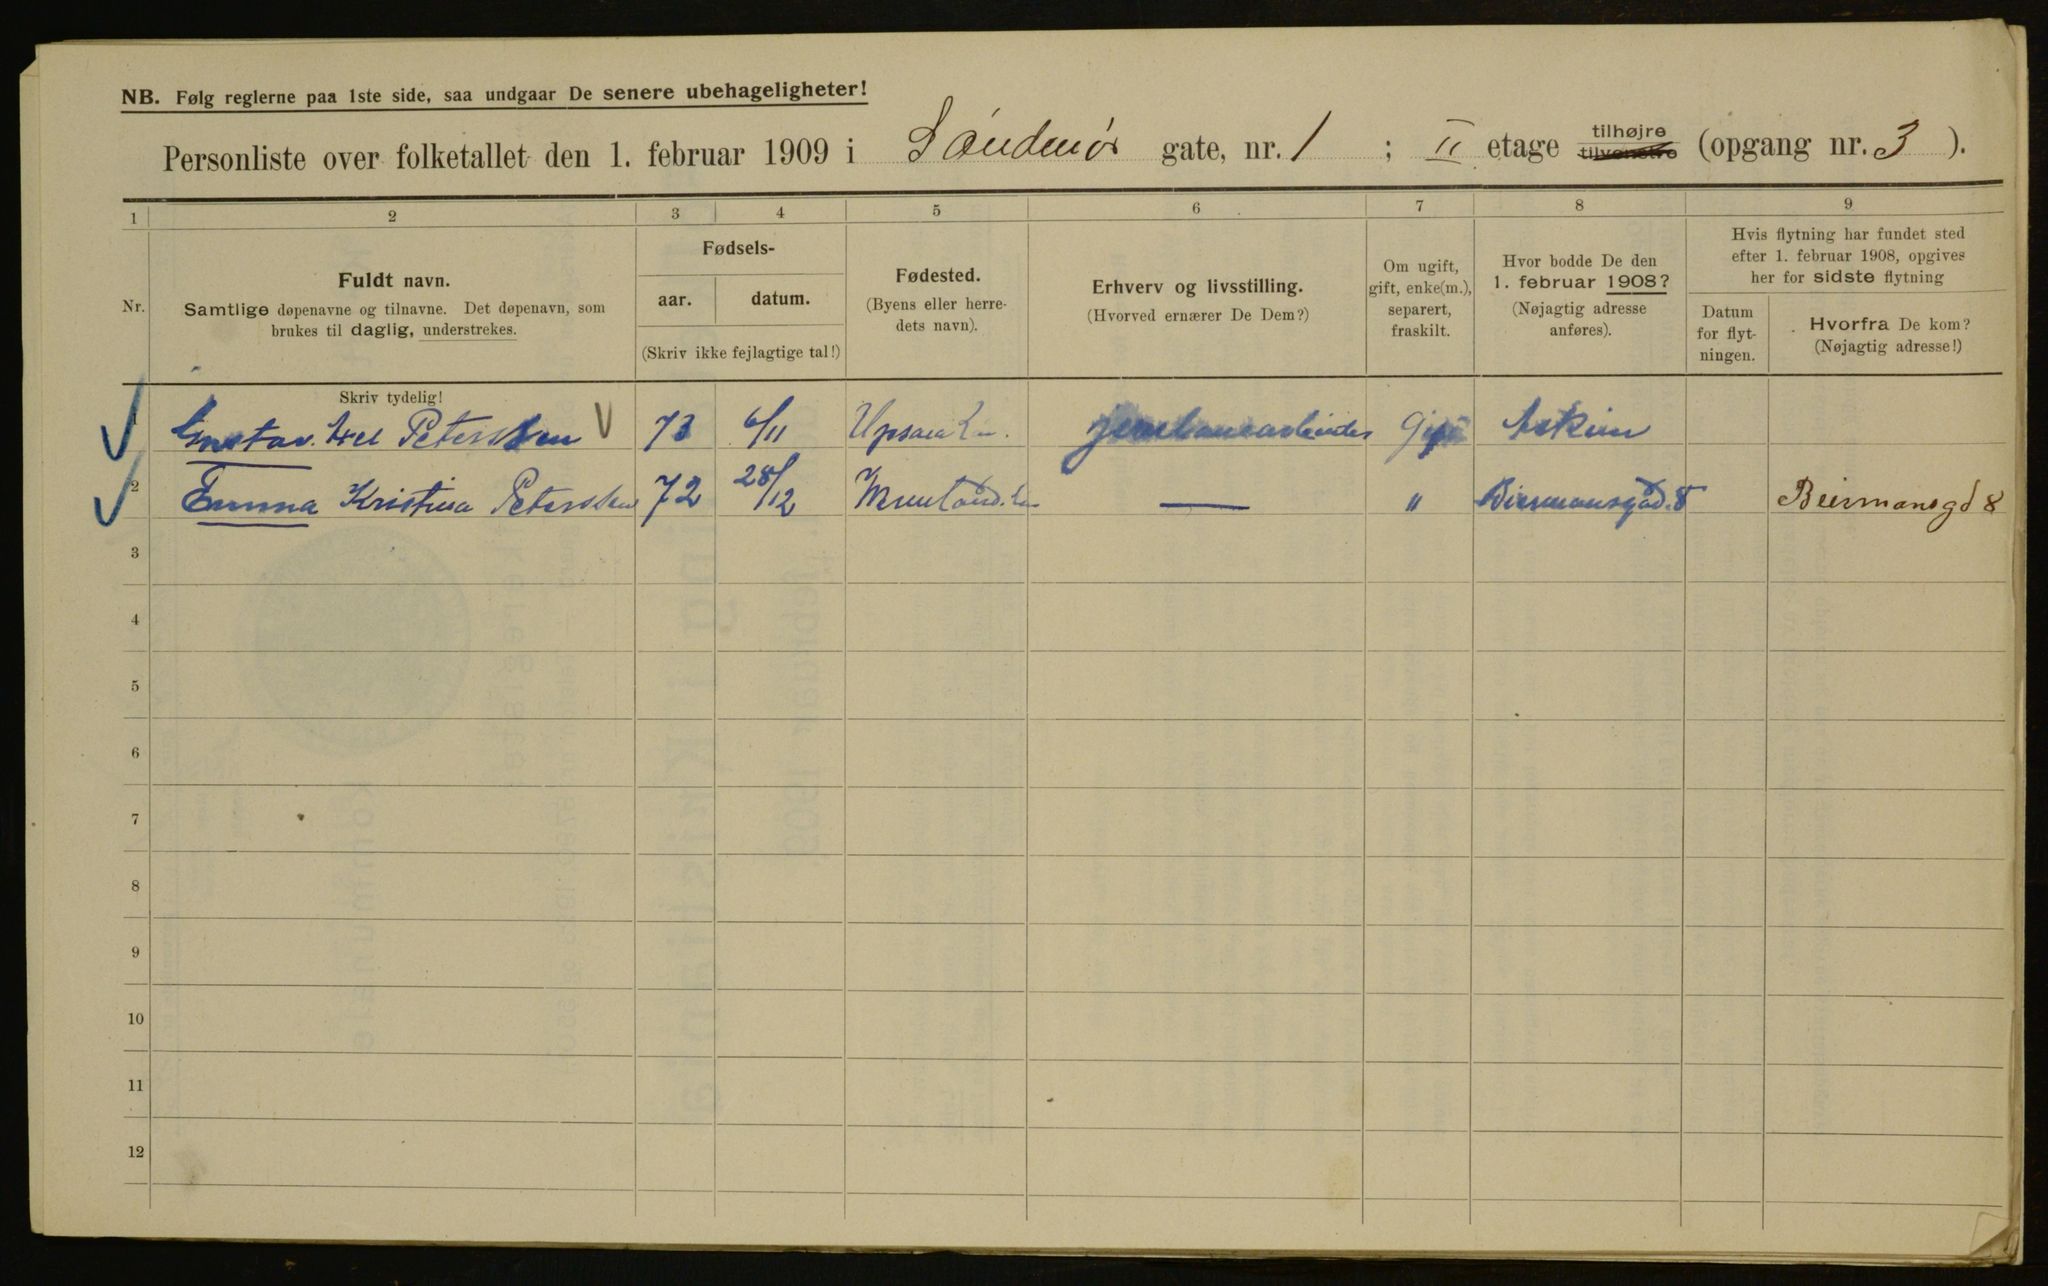 NB. Følg reglerne paa 1ste side, saa undgaar De senere ubehageligheter!
Personliste over folketallet den 1. februar 1909 i Söndmör gate, nr. 1 ; II etage tilhøjre tilvenstre (opgang nr. 3 ).
1 2 3 4 5 6 7 8 9
Nr.
Fuldt navn.
Samtlige døpenavne og tilnavne. Det døpenavn, som
brukes til daglig, understrekes.
Fødsels-
aar. datum.
(Skriv ikke fejlagtige tal!)
Fødested.
(Byens eller herre-
dets navn).
Erhverv og livsstilling.
(Hvorved ernærer De Dem?)
Om ugift,
gift, enke(m.),
separert,
fraskilt.
Hvor bodde De den
1. februar 1908?
(Nøjagtig adresse
anføres).
Hvis flytning har fundet sted
efter 1. februar 1908, opgives
her for sidste flytning
Datum
for flyt-
ningen.
Hvorfra De kom?
(Nøjagtig adresse!)
Skriv tydelig!
1 Gustav Axel Peterssen 73 6/11 Upsala Län. jernbanearbeider Gift Askim
2 Emma Kristina Peterssen 72 28/12 — " Biermansgad. 8 Beiermansgd 8
3
4
5
6
7
8
9
10
11
12